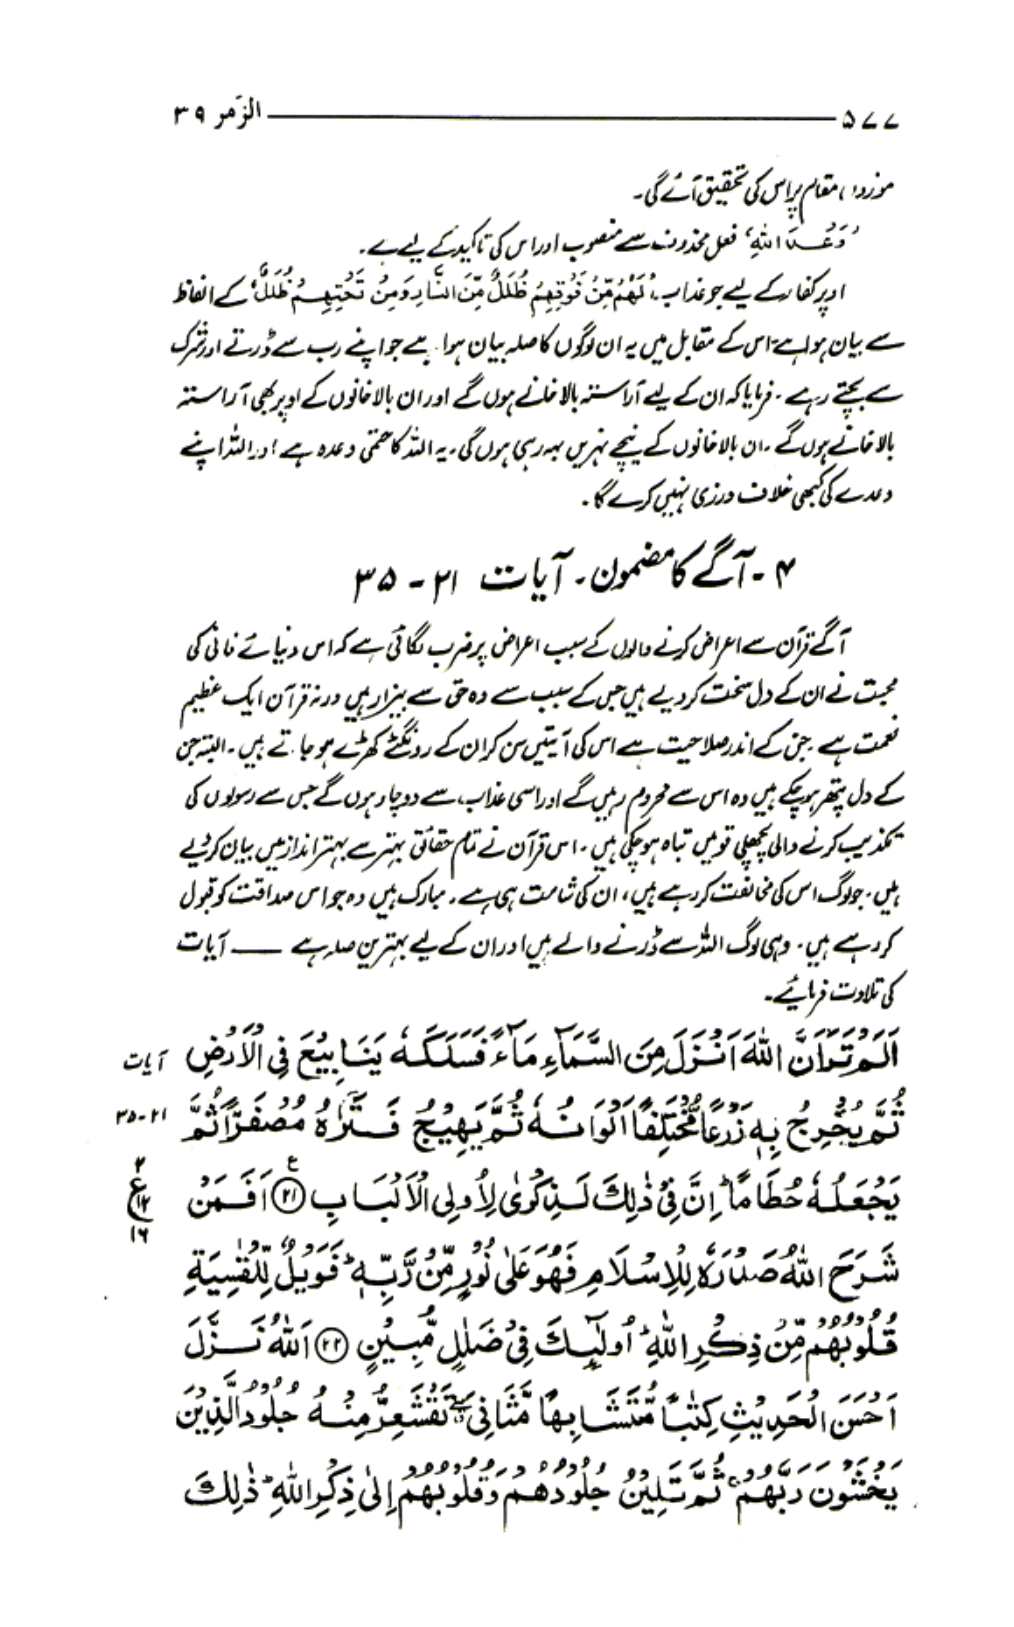 ۵۷۷ الزّمر ۳۹
موزوں مقام پر اس کی تحقیق آئے گی۔
’وَعْدَ اللّٰهِ‘ فعل محذوف سے منصوب اور اس کی تاکید کے لیے ہے۔
اوپر کفار کے لیے جو عذاب ’لَهُمْ مِّنْ فَوْقِهِمْ ظُلَلٌ مِّنَ النَّارِ وَمِنْ تَحْتِهِمْ ظُلَلٌ‘ کے الفاظ
سے بیان ہوا ہے اس کے مقابل میں یہ ان لوگوں کا صلہ بیان ہوا ہے جو اپنے رب سے ڈرتے اور شرک
سے بچتے رہے۔ فرمایا کہ ان کے لیے آراستہ بالا خانے ہوں گے اور ان بالا خانوں کے اوپر بھی آراستہ
بالا خانے ہوں گے۔ ان بالا خانوں کے نیچے نہریں بہہ رہی ہوں گی۔ یہ اللہ کا حتمی وعدہ ہے اور اللہ اپنے
وعدے کی کبھی خلاف ورزی نہیں کرے گا۔
۴۔ آگے کا مضمون۔ آیات ۲۱ - ۳۵
آگے قرآن سے اعراض کرنے والوں کے سبب اعراض پر ضرب لگائی ہے کہ اس دنیائے فانی کی
محبت نے ان کے دل سخت کر دیے ہیں جس کے سبب سے وہ حق سے بیزار ہیں ورنہ قرآن ایک عظیم
نعمت ہے۔ جن کے اندر صلاحیت ہے اس کی آیتیں سن کر ان کے رونگٹے کھڑے ہو جاتے ہیں۔ البتہ جن
کے دل پتھر ہو چکے ہیں وہ اس سے محروم رہیں گے اور اسی عذاب سے دوچار ہوں گے جس سے رسولوں کی
تکذیب کرنے والی پچھلی قومیں تباہ ہو چکی ہیں۔ اس قرآن نے تمام حقائق بہتر سے بہتر انداز میں بیان کر دیے
ہیں۔ جو لوگ اس کی مخالفت کر رہے ہیں، ان کی شامت ہی ہے۔ مبارک ہیں وہ جو اس صداقت کو قبول
کر رہے ہیں۔ وہی لوگ اللہ سے ڈرنے والے ہیں اور ان کے لیے بہترین صلہ ہے —— آیات
کی تلاوت فرمایئے۔
اَلَمْ تَرَ اَنَّ اللّٰهَ اَنْزَلَ مِنَ السَّمَآءِ مَآءً فَسَلَكَهٗ يَنَابِيْعَ فِى الْاَرْضِ آیات
ثُمَّ يُخْرِجُ بِهٖ زَرْعًا مُّخْتَلِفًا اَلْوَانُهٗ ثُمَّ يَهِيْجُ فَتَرٰىهُ مُصْفَرًّا ثُمَّ ۲۱-۳۵
يَجْعَلُهٗ حُطَامًا ؕ اِنَّ فِىْ ذٰلِكَ لَذِكْرٰى لِاُولِى الْاَلْبَابِ ﴿۲۱﴾ ع اَفَمَنْ ۲ ع ۱۲ ۱۶
شَرَحَ اللّٰهُ صَدْرَهٗ لِلْاِسْلَامِ فَهُوَ عَلٰى نُوْرٍ مِّنْ رَّبِّهٖ ؕ فَوَيْلٌ لِّلْقٰسِيَةِ
قُلُوْبُهُمْ مِّنْ ذِكْرِ اللّٰهِ ؕ اُولٰٓئِكَ فِىْ ضَلٰلٍ مُّبِيْنٍ ﴿۲۲﴾ اَللّٰهُ نَزَّلَ
اَحْسَنَ الْحَدِيْثِ كِتٰبًا مُّتَشَابِهًا مَّثَانِىَ تَقْشَعِرُّ مِنْهُ جُلُوْدُ الَّذِيْنَ
يَخْشَوْنَ رَبَّهُمْ ۚ ثُمَّ تَلِيْنُ جُلُوْدُهُمْ وَقُلُوْبُهُمْ اِلٰى ذِكْرِ اللّٰهِ ؕ ذٰلِكَ